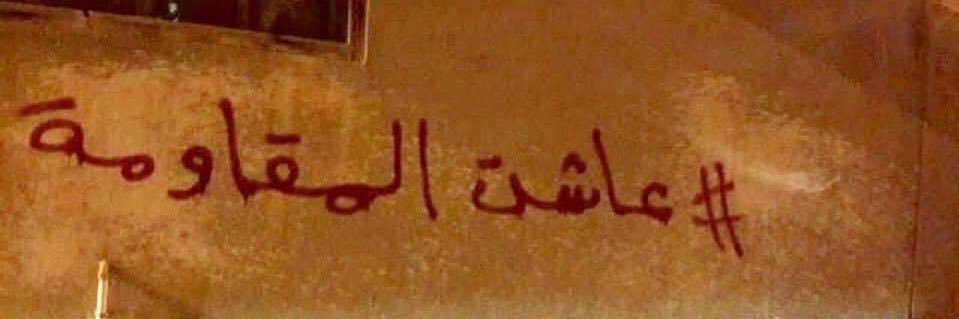 #عاشت المقاومة